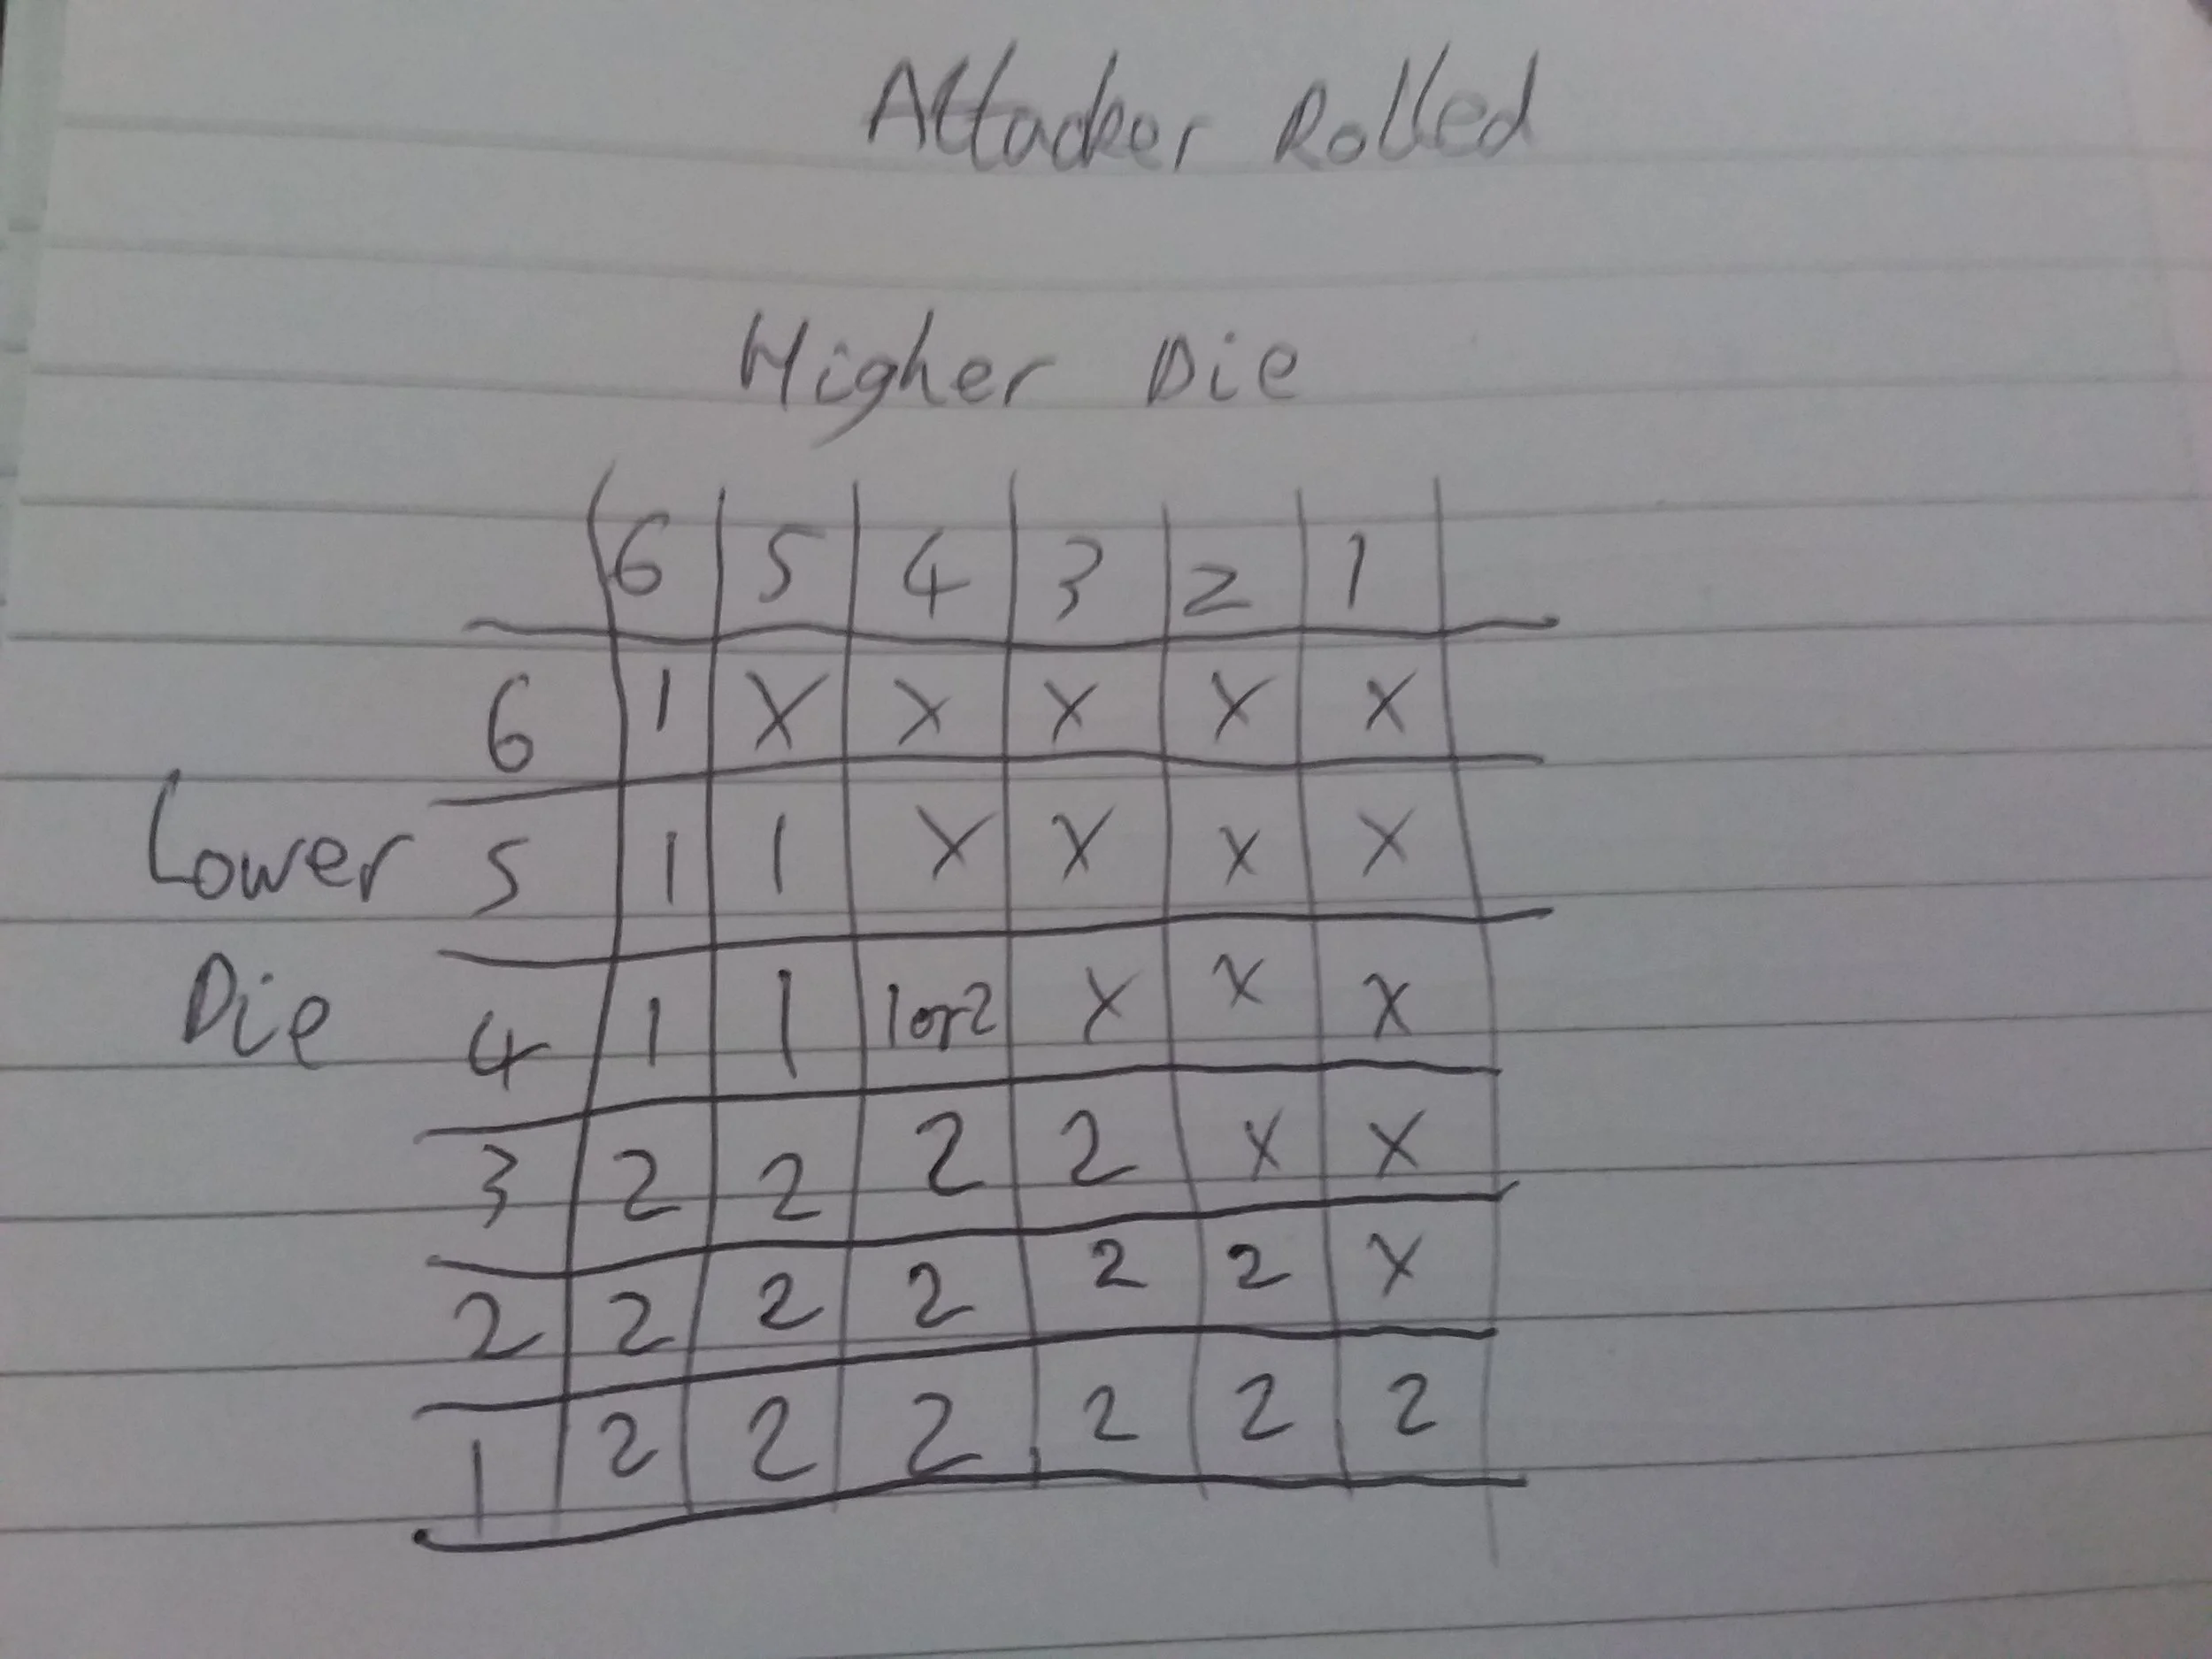 Attacker Rolled
Higher Die
6 5 4 3 2 1
6 1 X X X X X
Lower 5 1 1 X X X X
Die 4 1 1 1 or 2 X X X
3 2 2 2 2 X X
2 2 2 2 2 2 X
1 2 2 2 2 2 2